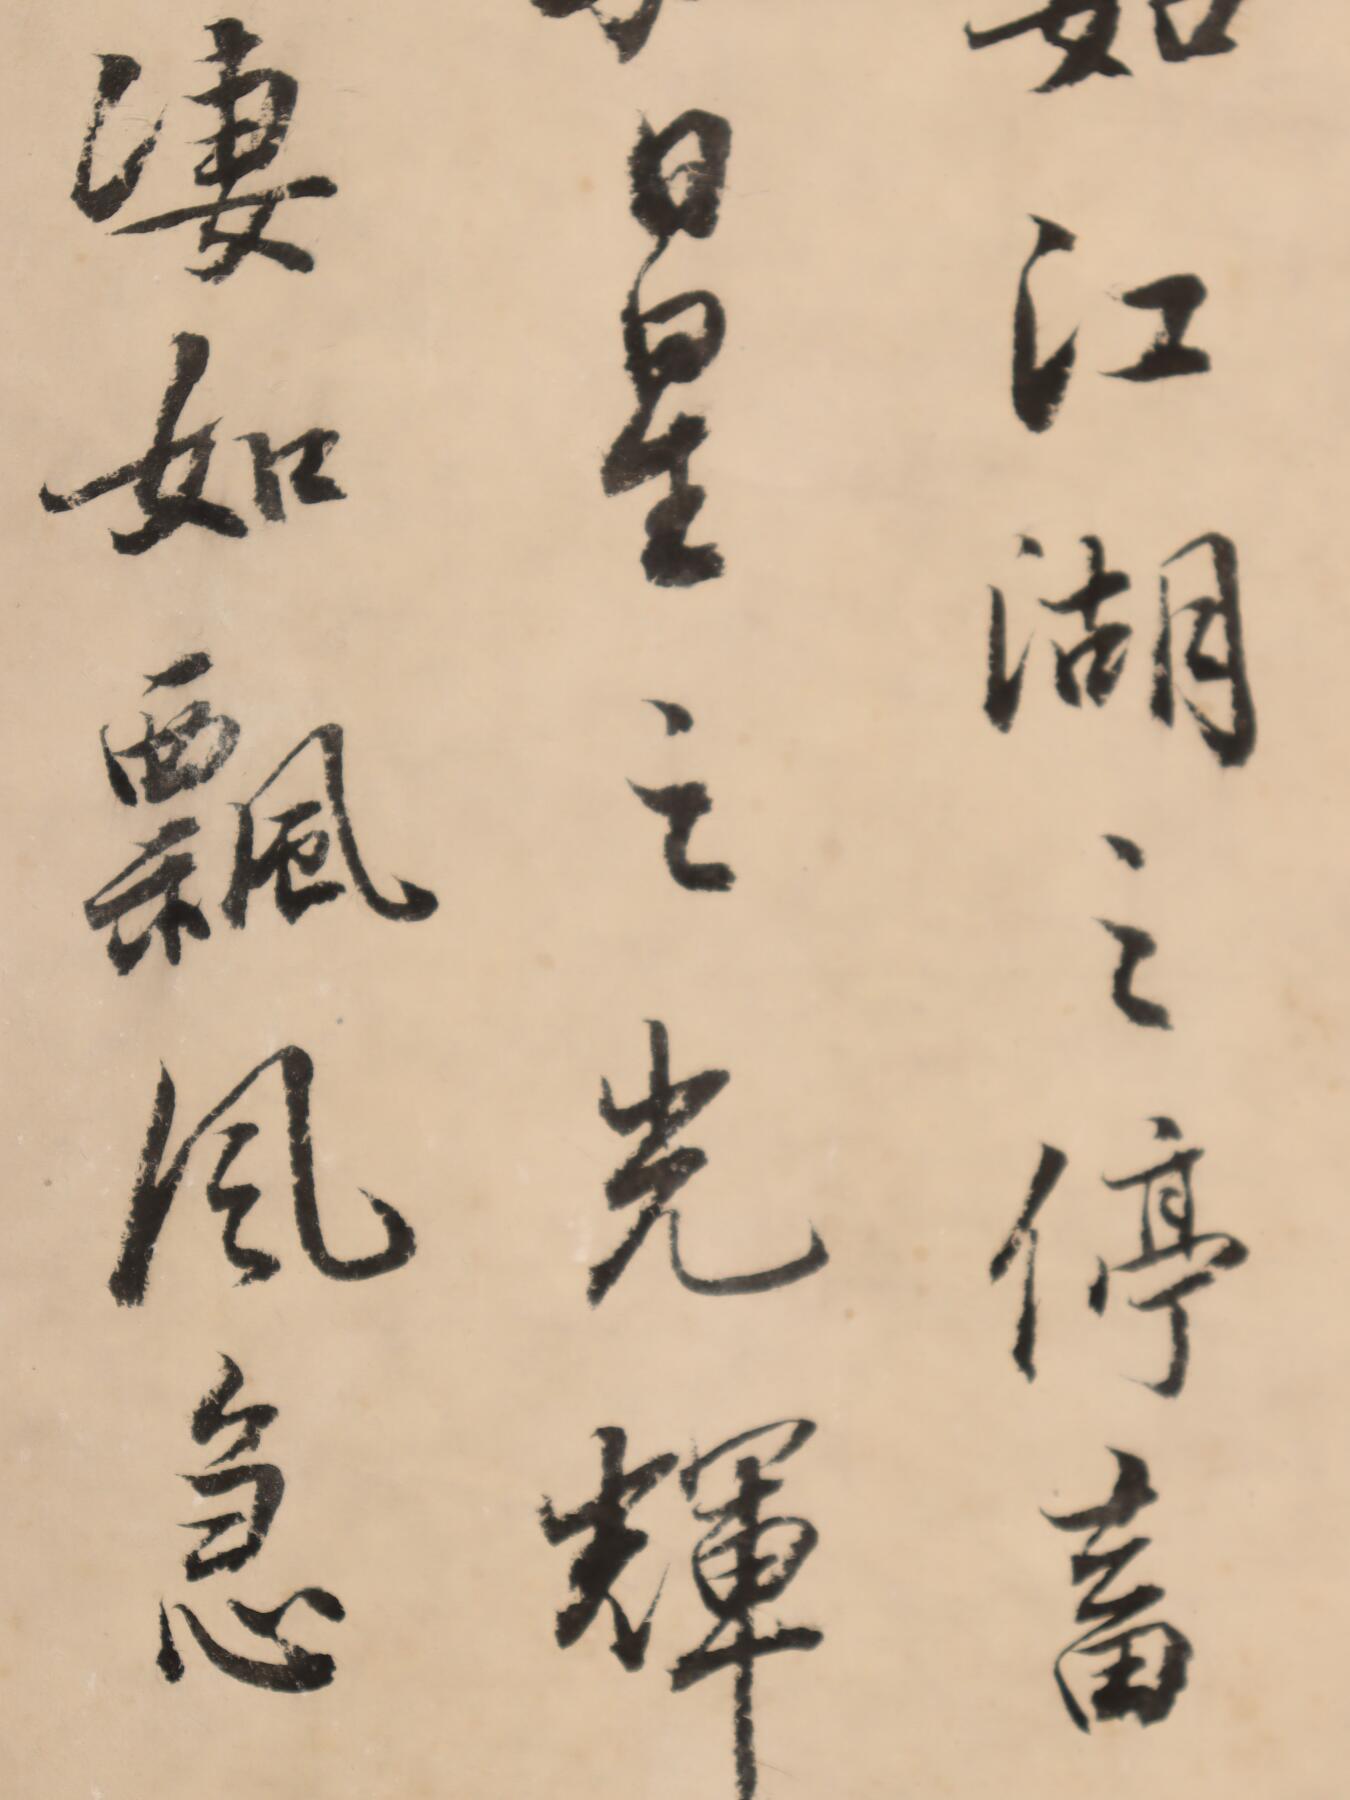 如江湖之停畜
日星之光輝
淒如飄風急